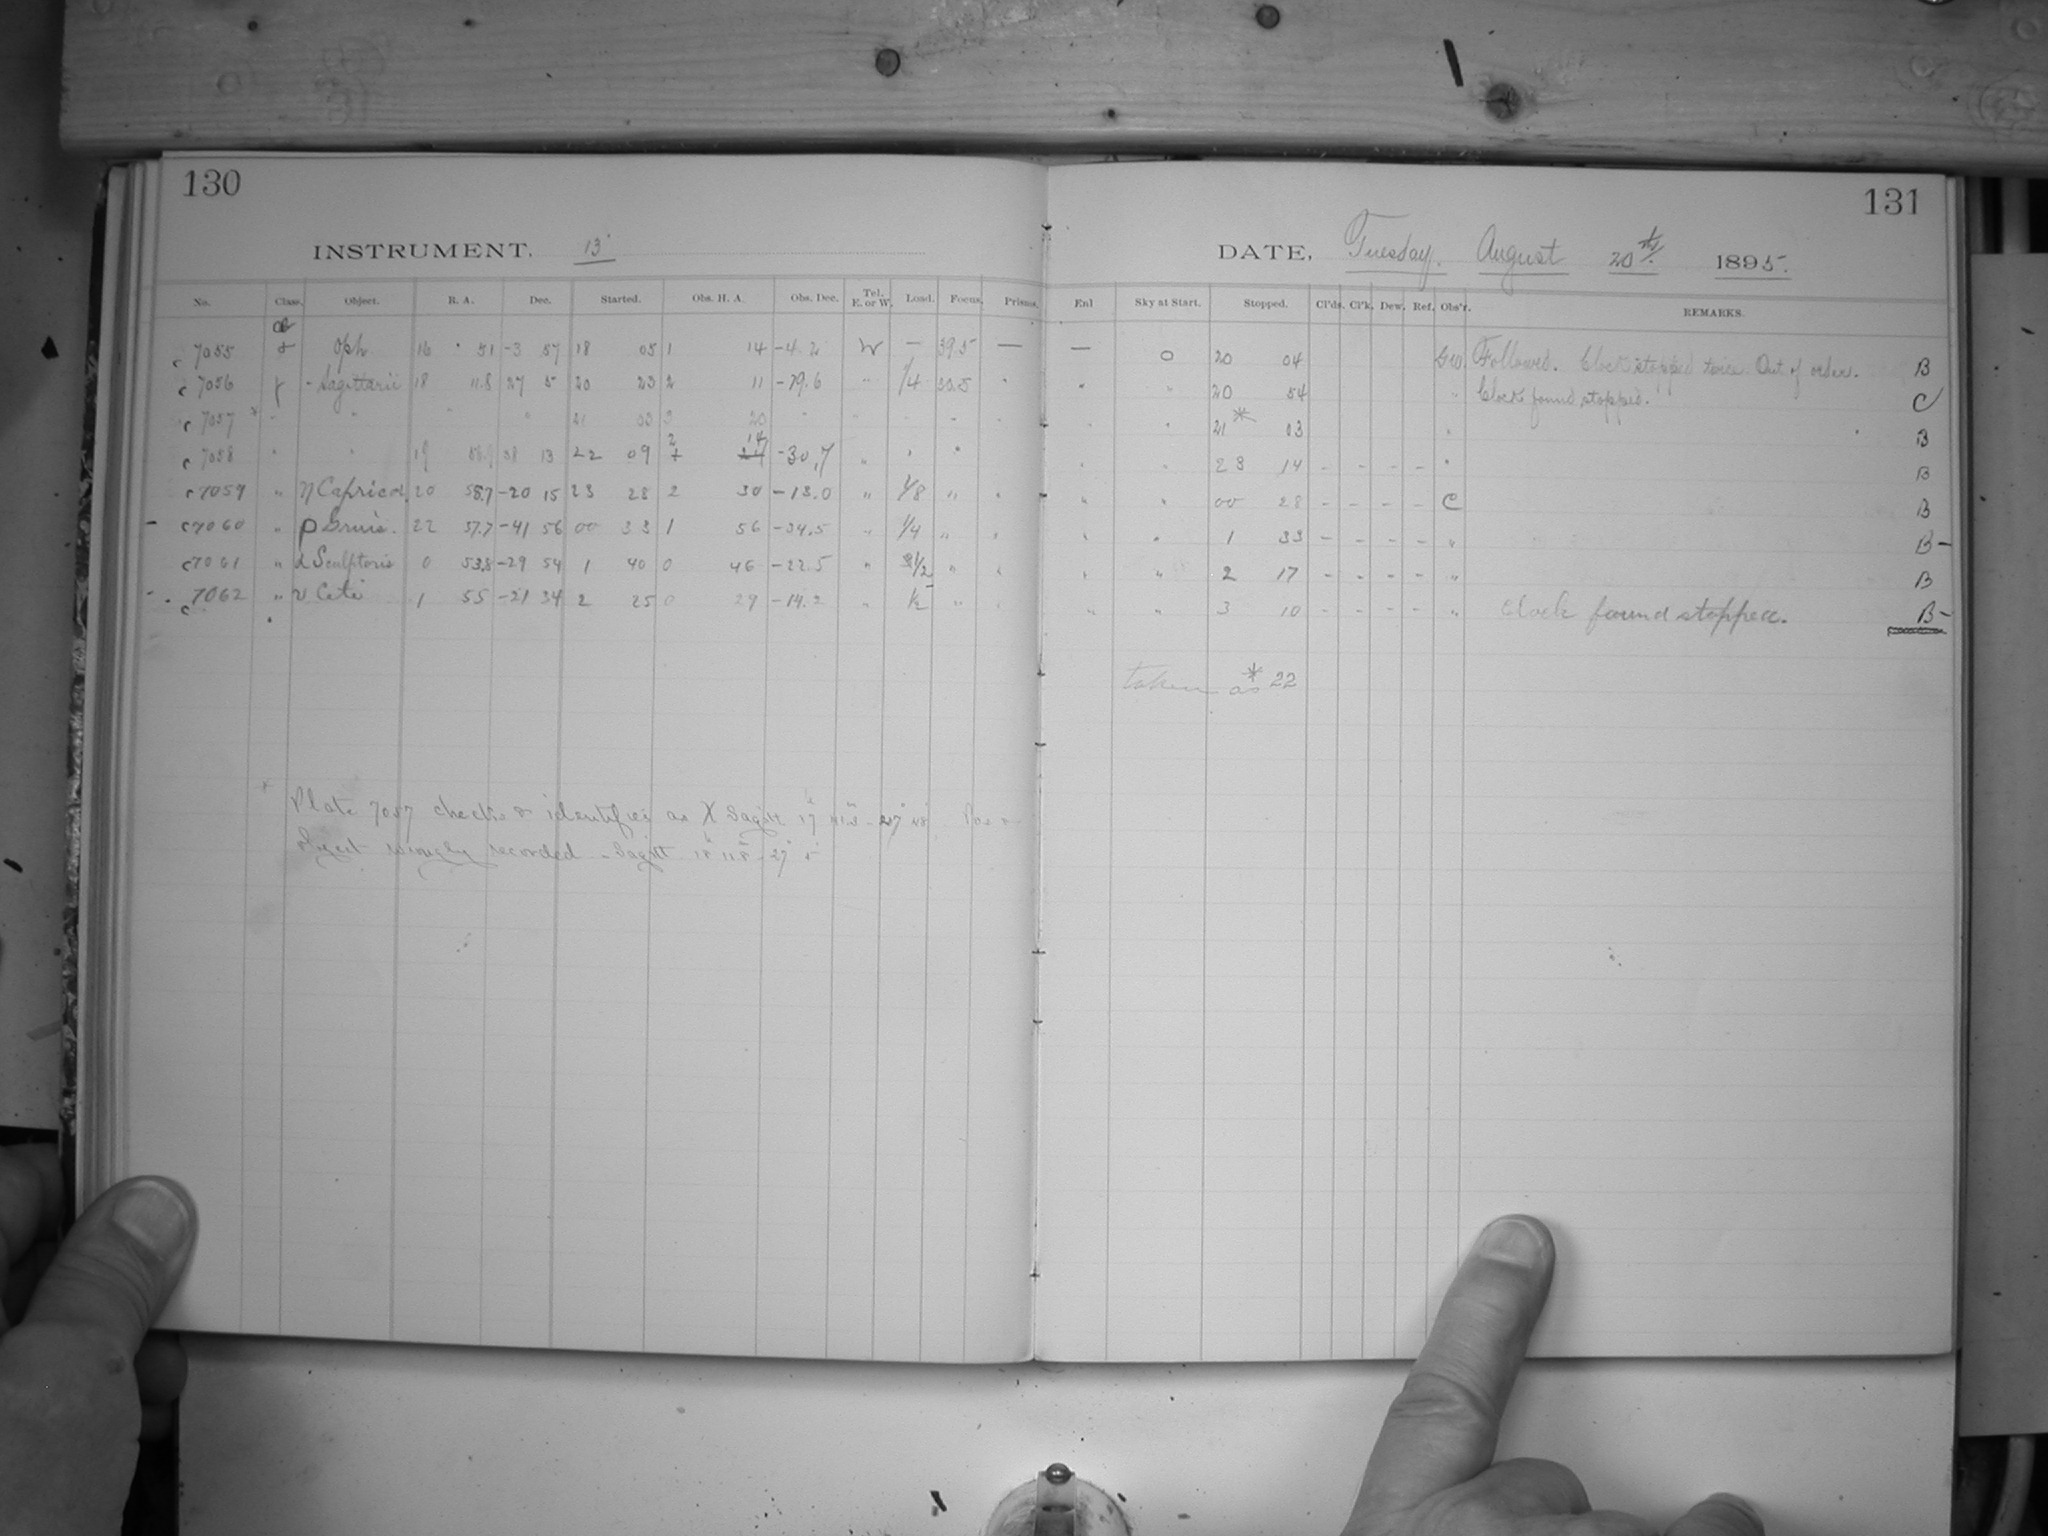 130
131
INSTRUMENT. 13"
DATE, Tuesday. August 20th. 1895.
No. Class. Object. R. A. Dec. Started. Obs. H. A. Obs. Dec. Tel. E. or W. Load. Focus. Prisms. Enl Sky at Start. Stopped. Cl'ds. Cl'k. Dew. Ref. Obs'r. REMARKS.
c 7055 Oph 16 51 -3 57 18 05 1 14 -4.2 W — 39.5 — — 0 20 04 Followed. Clock stopped twice. Out of order. B
c 7056 - Sagittarii 18 11.8 27 5 20 23 2 11 -79.6 " 1/4 " " " 20 54 " Clock found stopped. C
c 7057 * " " " " 21 03 3 20 " " 21* 03 " B
c 7058 " " 19 13 22 09 2 14 -30.7 " " " " " 23 14 - - - - " B
c 7059 " η Capricor. 20 58.7 -20 15 23 28 2 30 -13.0 " 1/8 " " " " 00 28 - - - - C B
- c 7060 " Gruis. 22 57.7 -41 56 00 33 1 56 -34.5 " 1/4 " " " " 1 33 - - - - " B-
c 7061 " α Sculptoris 0 53.8 -29 54 1 40 0 46 -22.5 " 1/2 " " " " 2 17 - - - - " B
- c 7062 " υ Ceti 1 55 -21 34 2 25 0 29 -14.2 " 1/2 " " " " 3 10 - - - - " Clock found stopped. B-
taken as * 22
* Plate 7057 checks & identifies as X Sagitt 17
object wrongly recorded - Sagitt 18 11.8 - 27 5